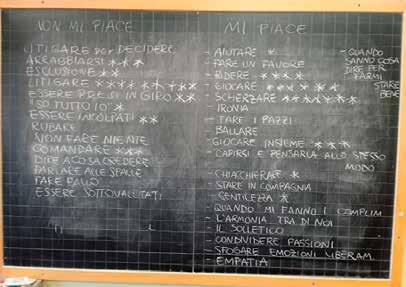 NON MI PIACE
LITIGARE PER DECIDERE
ARRABBIARSI ***
ESCLUSIONE **
LITIGARE **** ****
ESSERE PRESI IN GIRO **
"SO TUTTO IO" *
ESSERE INCOLPATI **
RUBARE
NON FARE NIENTE
COMANDARE ***
DIRE A COSA CREDERE
PARLARE ALLE SPALLE
FARE FALLO
ESSERE SOTTOVALUTATI
MI PIACE
- AIUTARE *
- FARE UN FAVORE
- RIDERE ****
- GIOCARE *****
- SCHERZARE ******
- IRONIA
- FARE I PAZZI
- BALLARE
- GIOCARE INSIEME ****
- CAPIRSI E PENSARLA ALLO STESSO
MODO
- CHIACCHIERARE *
- STARE IN COMPAGNIA
- GENTILEZZA *
- QUANDO MI FANNO I COMPLIM
- L'ARMONIA TRA DI NOI
- IL SOLLETICO
- CONDIVIDERE PASSIONI
- SFOGARE EMOZIONI LIBERAM
- EMPATIA
- QUANDO
SANNO COSA
DIRE PER
FARMI
STARE
BENE